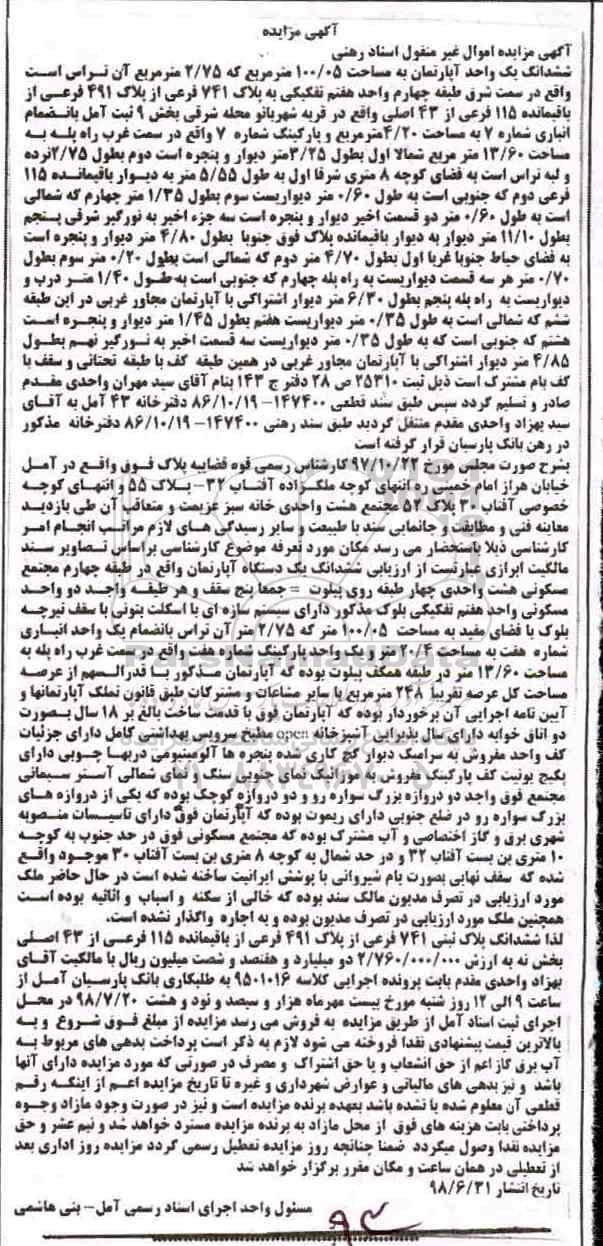 آگهی مزایده
آگهی مزایده اموال غیر منقول اسناد رهنی
ششدانگ یک واحد آپارتمان به مساحت ۱۰۰/۰۵ مترمربع که ۲/۷۵ مترمربع آن تراس است
واقع در سمت شرق طبقه چهارم واحد هفتم تفکیکی به پلاک ۷۴۱ فرعی از پلاک ۴۹۱ فرعی از
باقیمانده ۱۱۵ فرعی از ۴۳ اصلی واقع در قریه شهربانو محله شرقی بخش ۹ ثبت آمل بانضمام
انباری شماره ۷ به مساحت ۴/۲۰مترمربع و پارکینگ شماره ۷ واقع در سمت غرب راه پله به
مساحت ۱۳/۶۰ متر مربع شمالا اول بطول ۳/۲۵متر دیوار و پنجره است دوم بطول ۲/۷۵نرده
و لبه تراس است به فضای کوچه ۸ متری شرقا اول به طول ۵/۵۵ متر به دیوار باقیمانده ۱۱۵
فرعی دوم که جنوبی است به طول ۰/۶۰ متر دیواریست سوم بطول ۱/۳۵ متر چهارم که شمالی
است به طول ۰/۶۰ متر دو قسمت اخیر دیوار و پنجره است سه جزء اخیر به نورگیر شرقی پنجم
بطول ۱۱/۱۰ متر دیوار به دیوار باقیمانده پلاک فوق جنوبا بطول ۴/۸۰ متر دیوار و پنجره است
به فضای حیاط جنوبا غربا اول بطول ۴/۷۰ متر دوم که شمالی است بطول ۰/۲۰ متر سوم بطول
۰/۷۰ متر هر سه قسمت دیواریست به راه پله چهارم که جنوبی است به طول ۱/۴۰ متر درب و
دیواریست به راه پله پنجم بطول ۶/۳۰ متر دیوار اشتراکی با آپارتمان مجاور غربی در این طبقه
ششم که شمالی است به طول ۰/۳۵ متر دیواریست هفتم بطول ۱/۴۵ متر دیوار و پنجره است
هشتم که جنوبی است که به طول ۰/۳۵ متر دیواریست سه قسمت اخیر به نورگیر نهم بطول
۴/۸۵ متر دیوار اشتراکی با آپارتمان مجاور غربی در همین طبقه کف با طبقه تحتانی و سقف با
کف بام مشترک است ذیل ثبت ۲۵۳۱۰ ص ۲۸ دفتر ج ۱۴۳ بنام آقای سید مهران واحدی مقدم
صادر و تسلیم گردد سپس طبق سند قطعی ۱۴۷۴۰۰- ۸۶/۱۰/۱۹ دفترخانه ۴۳ آمل به آقای
سید بهزاد واحدی مقدم منتقل گردید طبق سند رهنی ۱۴۷۴۰۰- ۸۶/۱۰/۱۹ دفترخانه مذکور
در رهن بانک پارسیان قرار گرفته است
بشرح صورت مجلس مورخ ۹۷/۱۰/۲۲ کارشناس رسمی قوه قضاییه پلاک فوق واقع در آمل
خیابان هراز امام خمینی ره انتهای کوچه ملک زاده آفتاب ۳۲- پلاک ۵۵ و انتهای کوچه
خصوصی آفتاب ۳۰ پلاک ۵۲ مجتمع هشت واحدی خانه سبز عزیمت و متعاقب آن طی بازدید
معاینه فنی و مطابقت و جانمایی سند با طبیعت و سایر رسیدگی های لازم مراتب انجام امر
کارشناسی ذیلا باستحضار می رسد مکان مورد تعرفه موضوع کارشناسی براساس تصاویر سند
مالکیت ابرازی عبارتست از ارزیابی ششدانگ یک دستگاه آپارتمان واقع در طبقه چهارم مجتمع
مسکونی هشت واحدی چهار طبقه روی پیلوت = جمعا پنج سقف و هر طبقه واجد دو واحد
مسکونی واحد هفتم تفکیکی بلوک مذکور دارای سیستم سازه ای با اسکلت بتونی با سقف تیرچه
بلوک با فضای مفید به مساحت ۱۰۰/۰۵ متر که ۲/۷۵ متر آن تراس بانضمام یک واحد انباری
شماره هفت به مساحت ۲۰/۴ متر و یک واحد پارکینگ شماره هفت واقع در سمت غرب راه پله به
مساحت ۱۳/۶۰ متر در طبقه همکف پیلوت بوده که آپارتمان مذکور با قدرالسهم از عرصه
مساحت کل عرصه تقریبا ۲۴۸ مترمربع با سایر مشاعات و مشترکات طبق قانون تملک آپارتمانها و
آیین نامه اجرایی آن برخوردار بوده که آپارتمان فوق با قدمت ساخت بالغ بر ۱۸ سال بصورت
دو اتاق خوابه دارای سال پذیرایی آشپزخانه open مطبخ سرویس بهداشتی کامل دارای جزئیات
کف واحد مفروش به سرامیک دیوار گچ کاری شده پنجره ها آلومینیومی دربها چوبی دارای
پکیج یونیت کف پارکینگ مفروش به موزائیک نمای جنوبی سنگ و نمای شمالی آستر سیمانی
مجتمع فوق واجد دو دروازه بزرگ سواره رو و دو دروازه کوچک بوده که یکی از دروازه های
بزرگ سواره رو در ضلع جنوبی دارای ریموت بوده که آپارتمان فوق دارای تاسیسات منصوبه
شهری برق و گاز اختصاصی و آب مشترک بوده که مجتمع مسکونی فوق در حد جنوب به کوچه
۱۰ متری بن بست آفتاب ۳۲ و در حد شمال به کوچه ۸ متری بن بست آفتاب ۳۰ موجود واقع
شده که سقف نهایی بصورت بام شیروانی با پوشش ایرانیت ساخته شده است در حال حاضر ملک
مورد ارزیابی در تصرف مدیون مالک سند بوده که خالی از سکنه و اسباب و اثاثیه بوده است
همچنین ملک مورد ارزیابی در تصرف مدیون بوده و به اجاره واگذار نشده است.
لذا ششدانگ پلاک ثبتی ۷۴۱ فرعی از پلاک ۴۹۱ فرعی از باقیمانده ۱۱۵ فرعی از ۴۳ اصلی
بخش نه به ارزش ۲/۷۶۰/۰۰۰/۰۰۰ دو میلیارد و هفتصد و شصت میلیون ریال با مالکیت آقای
بهزاد واحدی مقدم بابت پرونده اجرایی کلاسه ۹۵۰۱۰۱۶ به طلبکاری بانک پارسیان آمل از
ساعت ۹ الی ۱۲ روز شنبه مورخ بیست مهرماه هزار و سیصد و نود و هشت ۹۸/۷/۲۰ در محل
اجرای ثبت اسناد آمل از طریق مزایده به فروش می رسد مزایده از مبلغ فوق شروع و به
بالاترین قیمت پیشنهادی نقدا فروخته می شود لازم به ذکر است پرداخت بدهی های مربوط به
آب برق گاز اعم از حق انشعاب و یا حق اشتراک و مصرف در صورتی که مورد مزایده دارای آنها
باشد و نیز بدهی های مالیاتی و عوارض شهرداری و غیره تا تاریخ مزایده اعم از اینکه رقم
قطعی آن معلوم شده یا نشده باشد بعهده برنده مزایده است و نیز در صورت وجود مازاد وجوه
پرداختی بابت هزینه های فوق از محل مازاد به برنده مزایده مسترد خواهد شد و نیم عشر و حق
مزایده نقدا وصول میگردد ضمنا چنانچه روز مزایده تعطیل رسمی گردد مزایده روز اداری بعد
از تعطیلی در همان ساعت و مکان مقرر برگزار خواهد شد
تاریخ انتشار ۹۸/۶/۳۱
مسئول واحد اجرای اسناد رسمی آمل- بنی هاشمی